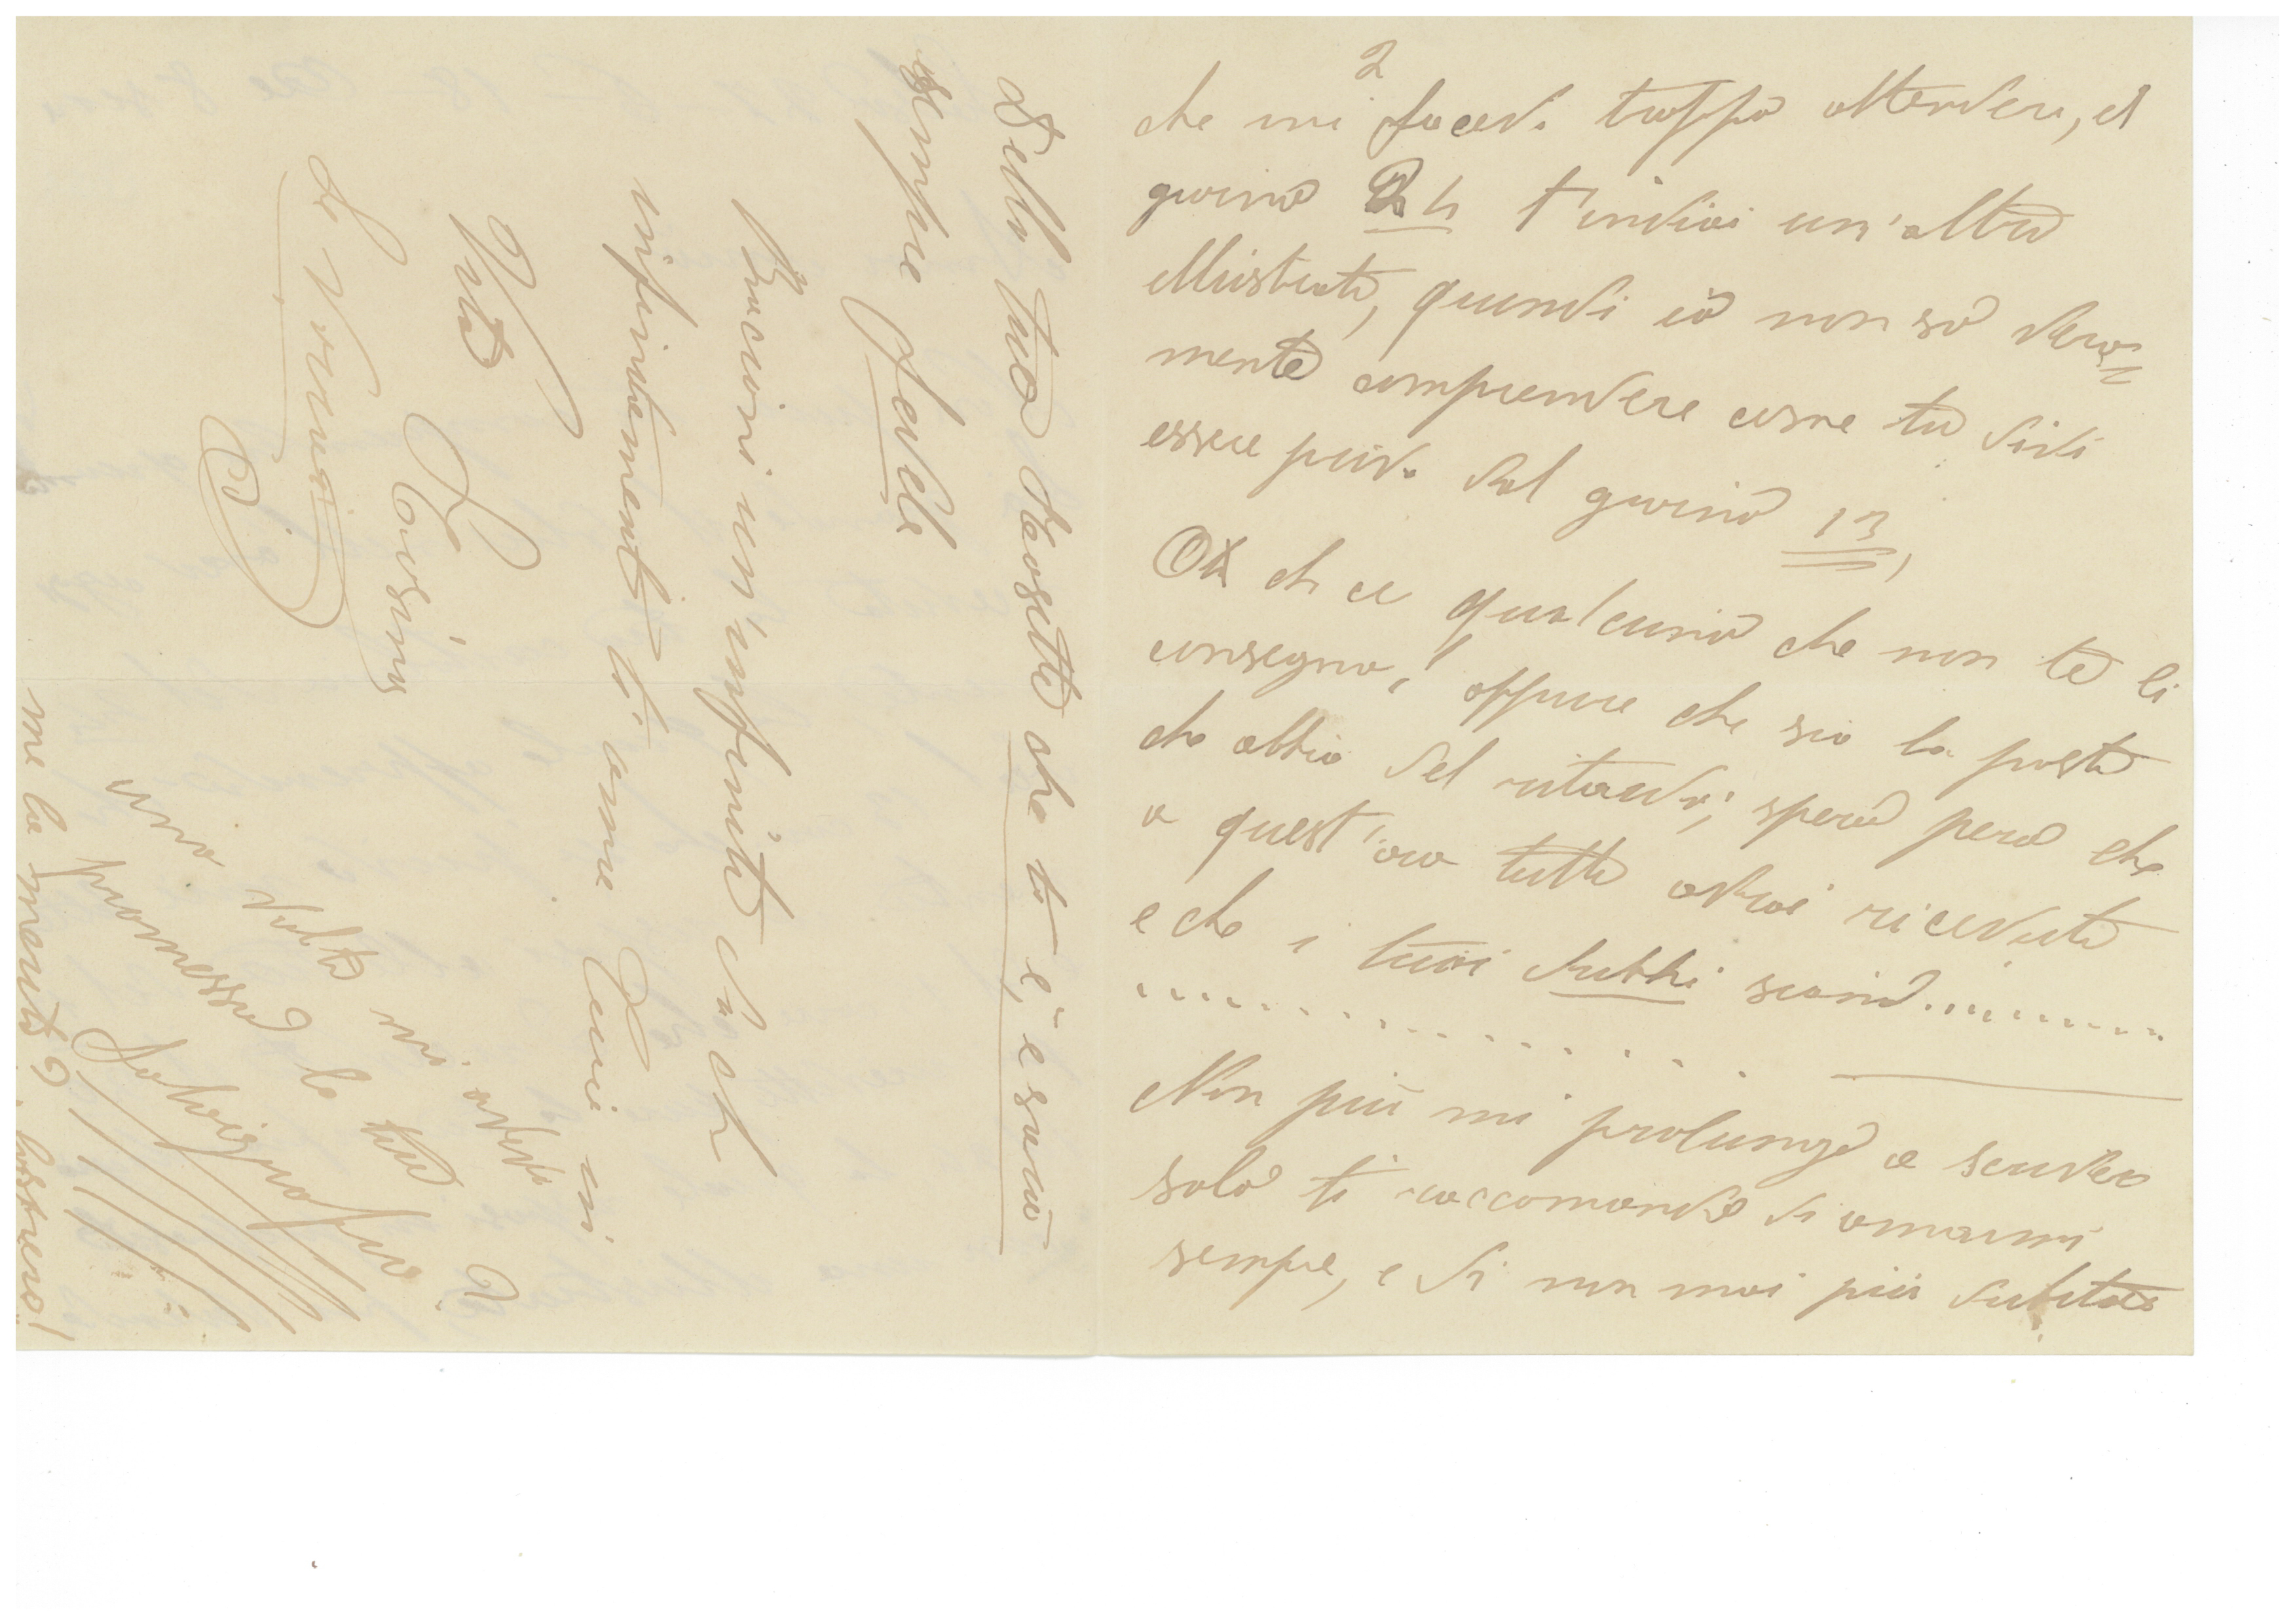 2
che mi facevi troppo attendere, el
giorno 24 t'inviai un'altra
illustrata, quindi io non so vera=
mente comprendere come tu sii
essere priva dal giorno 13,
O ch ce qualcuno che non te li
consegna, oppure che sia la posta
che abbia del ritardo; spero però che
a quest'ora tutto avrai ricevuto
e che i tuoi dubbi siano..........
..............
Non più mi prolungo a scrivere
solo ti raccomando di amarmi
sempre, e di non mai più dubitare
dello tuo che to è, e sarà
sempre fedele
Bacioni un'infinità da chi
infinitamente ti ama Tuo
Vito
una volta mi avevi
promesso la tua
fotografia
me la mandi? ..!